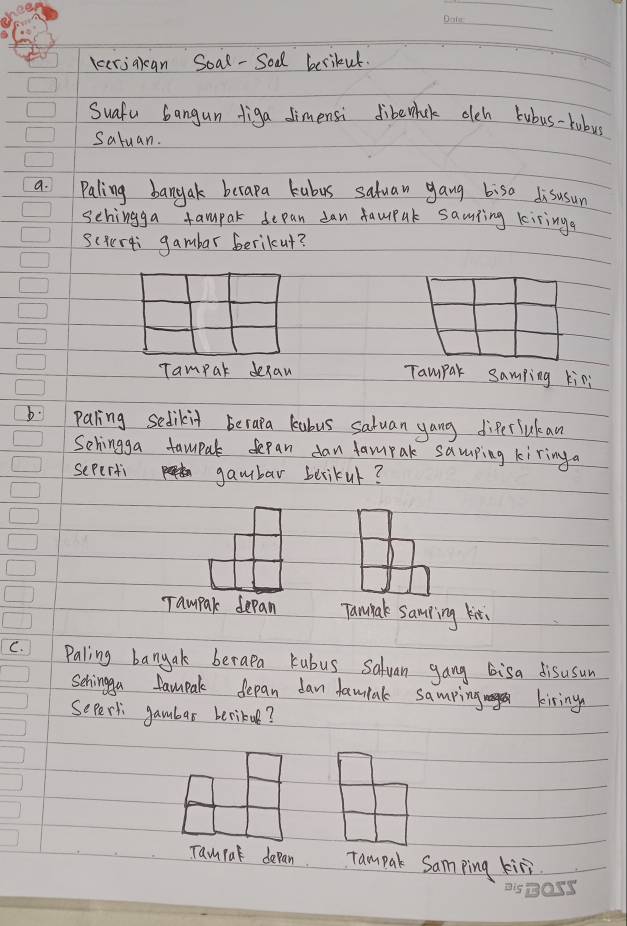 Cheers
Date:
Kerjakan Soal-Soal berikut.
Suatu bangun tiga dimensi dibentuk oleh kubus-kubus
Satuan.
a. Paling banyak berapa kubus satuan yang bisa disusun
sehingga tampak depan dan tampak samping kirinya
Seperti gambar berikut?
Tampak depan Tampak samping kiri
b. Paling sedikit berapa kubus satuan yang diperlukan
Sehingga tampak depan dan tampak samping kirinya
seperti gambar berikut?
Tampak depan Tampak samping kiri
C. Paling banyak berapa kubus Satuan yang bisa disusun
Sehingga tampak depan dan tampak samping kirinya
Seperti gambar berikut?
Tampak depan Tampak Samping kiri
Big BOSS